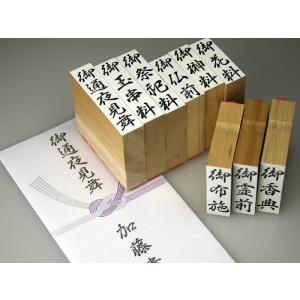 御通夜見舞
御玉串料
御祭祀料
御仏前
御榊料
御花料
御布施
御霊前
御香典
御通夜見舞
加藤